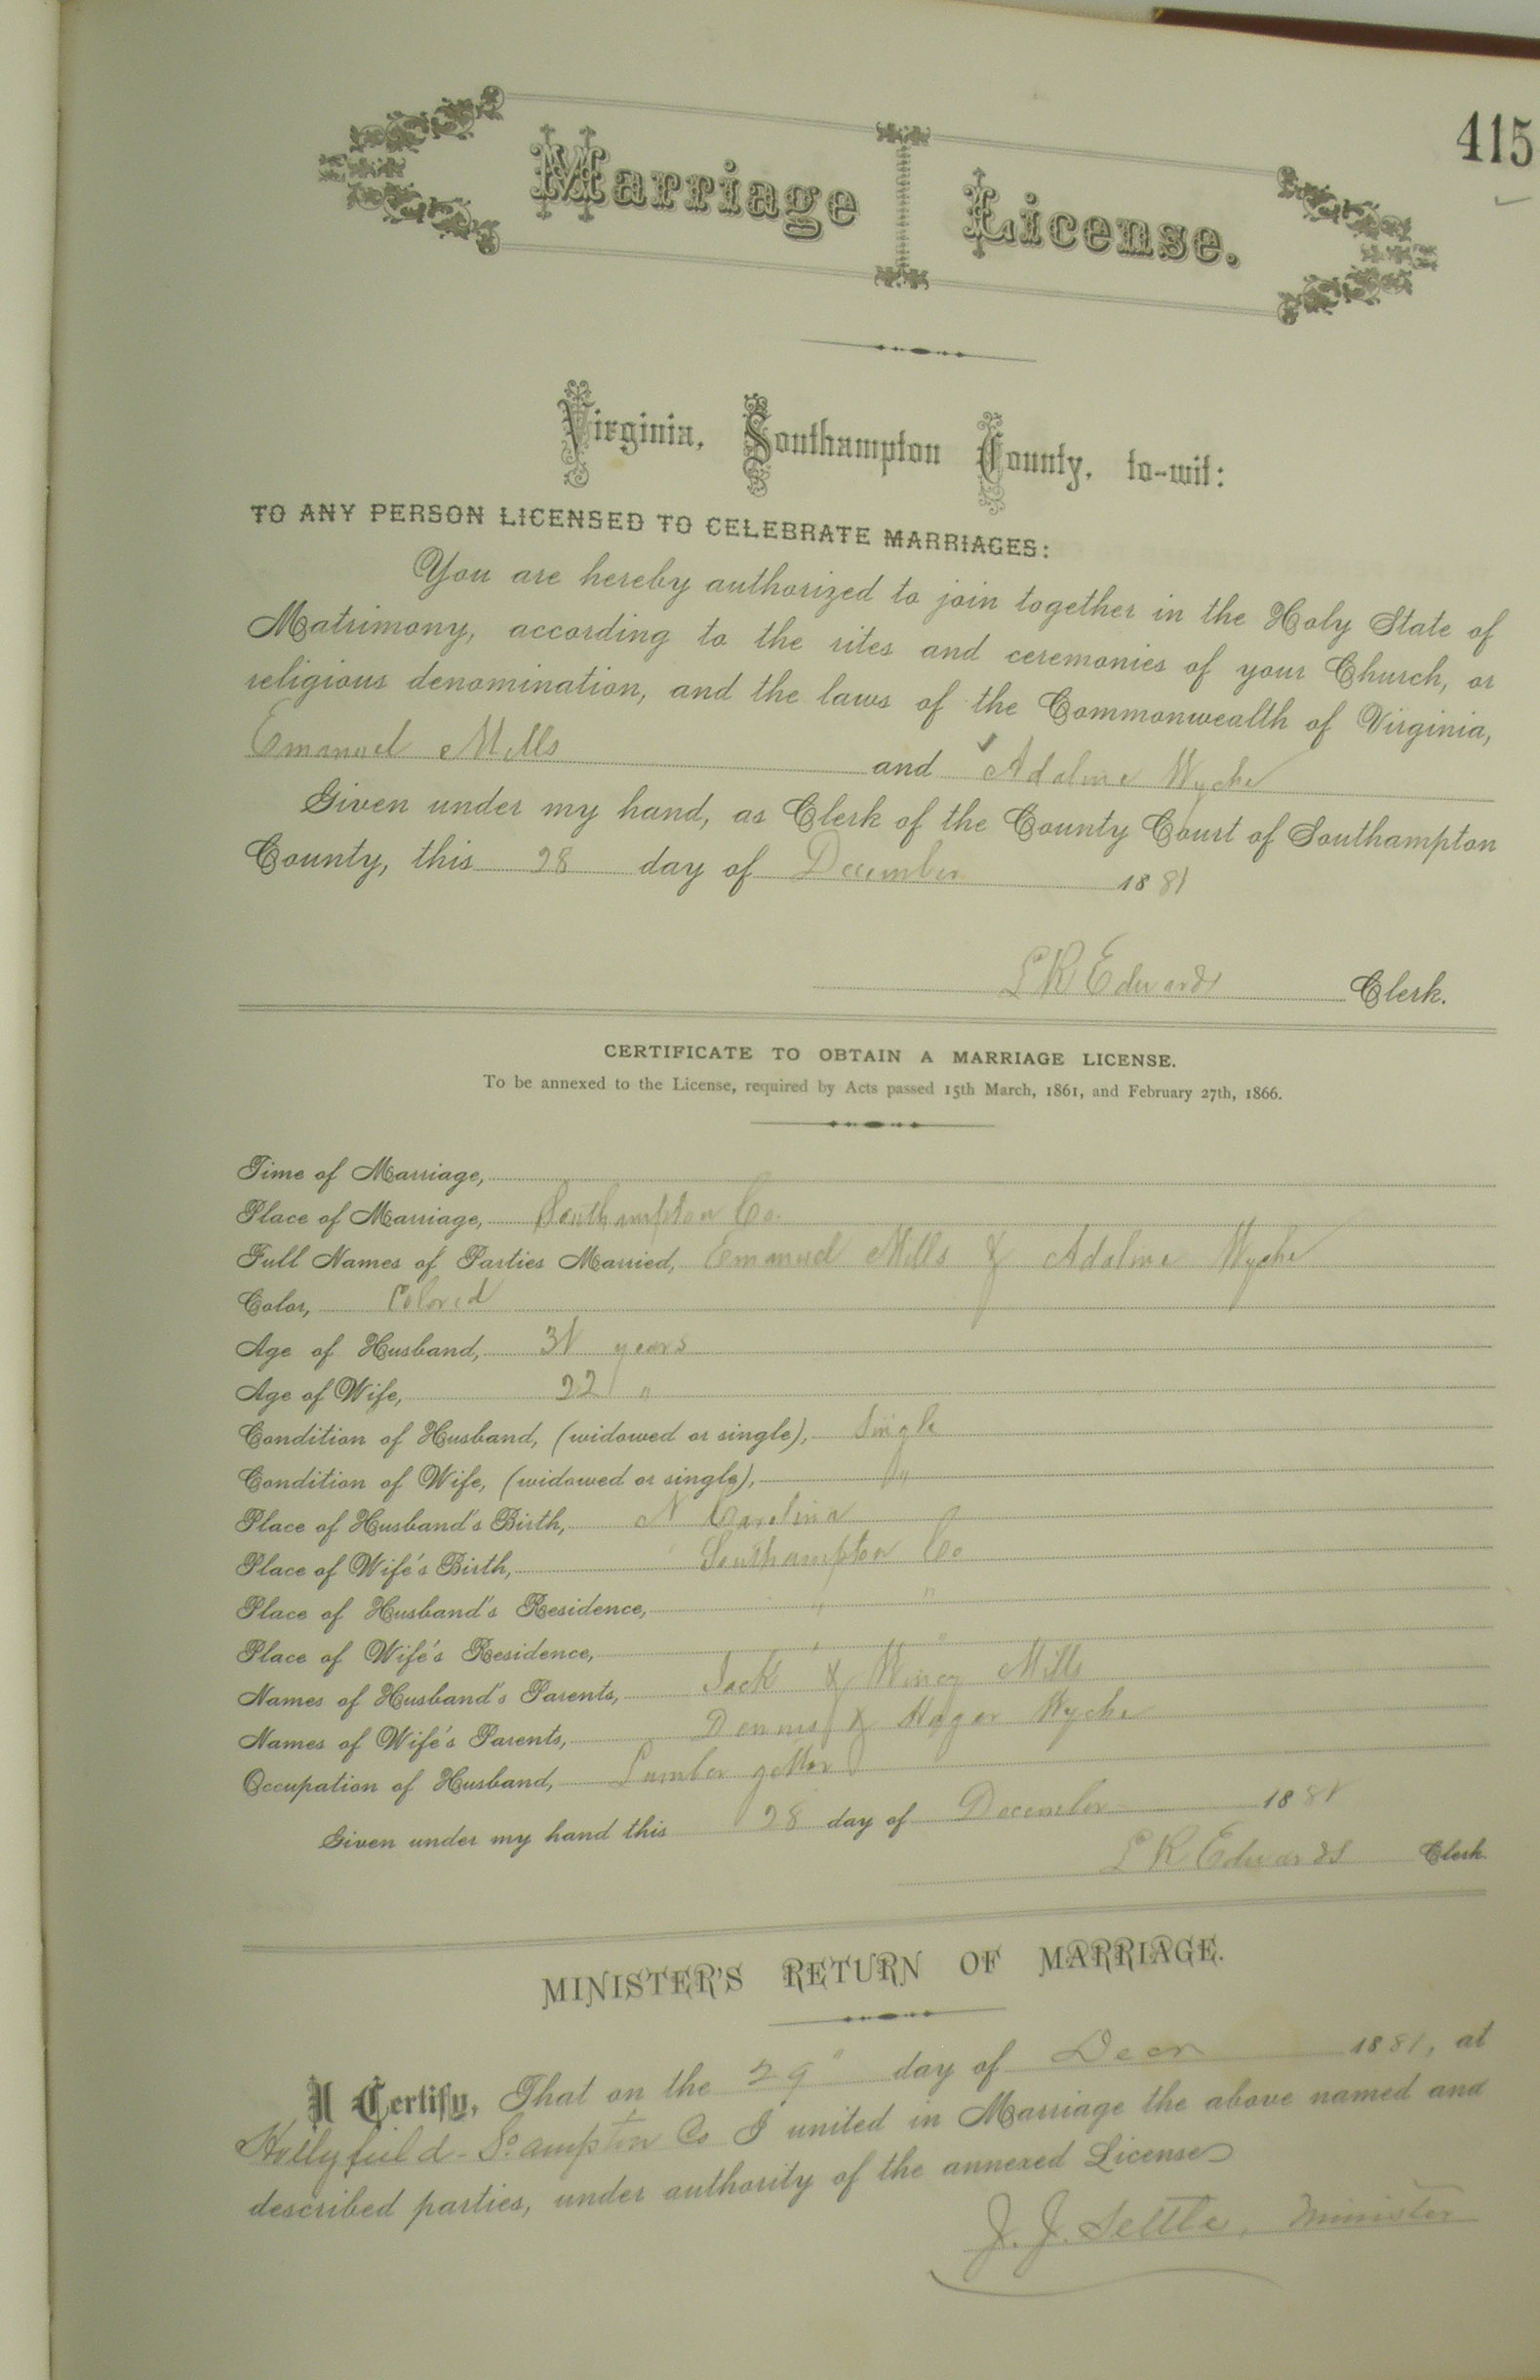 415
Marriage License.
Virginia, Southampton County, to-wit:
TO ANY PERSON LICENSED TO CELEBRATE MARRIAGES:
You are hereby authorized to join together in the Holy State of
Matrimony, according to the rites and ceremonies of your Church, or
religious denomination, and the laws of the Commonwealth of Virginia,
Emanuel Mills and Adaline Wyche
Given under my hand, as Clerk of the County Court of Southampton
County, this 28 day of December 1881
L R Edwards Clerk.
CERTIFICATE TO OBTAIN A MARRIAGE LICENSE.
To be annexed to the License, required by Acts passed 15th March, 1861, and February 27th, 1866.
Time of Marriage,
Place of Marriage, Southampton Co.
Full Names of Parties Married, Emanuel Mills & Adaline Wyche
Color, Colored
Age of Husband, years
Age of Wife, 22 "
Condition of Husband, (widowed or single), Single
Condition of Wife, (widowed or single), "
Place of Husband's Birth, N Carolina
Place of Wife's Birth, Southampton Co
Place of Husband's Residence, " "
Place of Wife's Residence, " "
Names of Husband's Parents, Jack & Mills
Names of Wife's Parents, Dennis & Hagar Wyche
Occupation of Husband, Lumber getter
Given under my hand this 28 day of December 1881
L R Edwards Clerk.
MINISTER'S RETURN OF MARRIAGE.
I Certify, That on the 29" day of Decr 1881, at
Hollyfield - So.ampton Co I united in Marriage the above named and
described parties, under authority of the annexed License
J. J. Settle, Minister